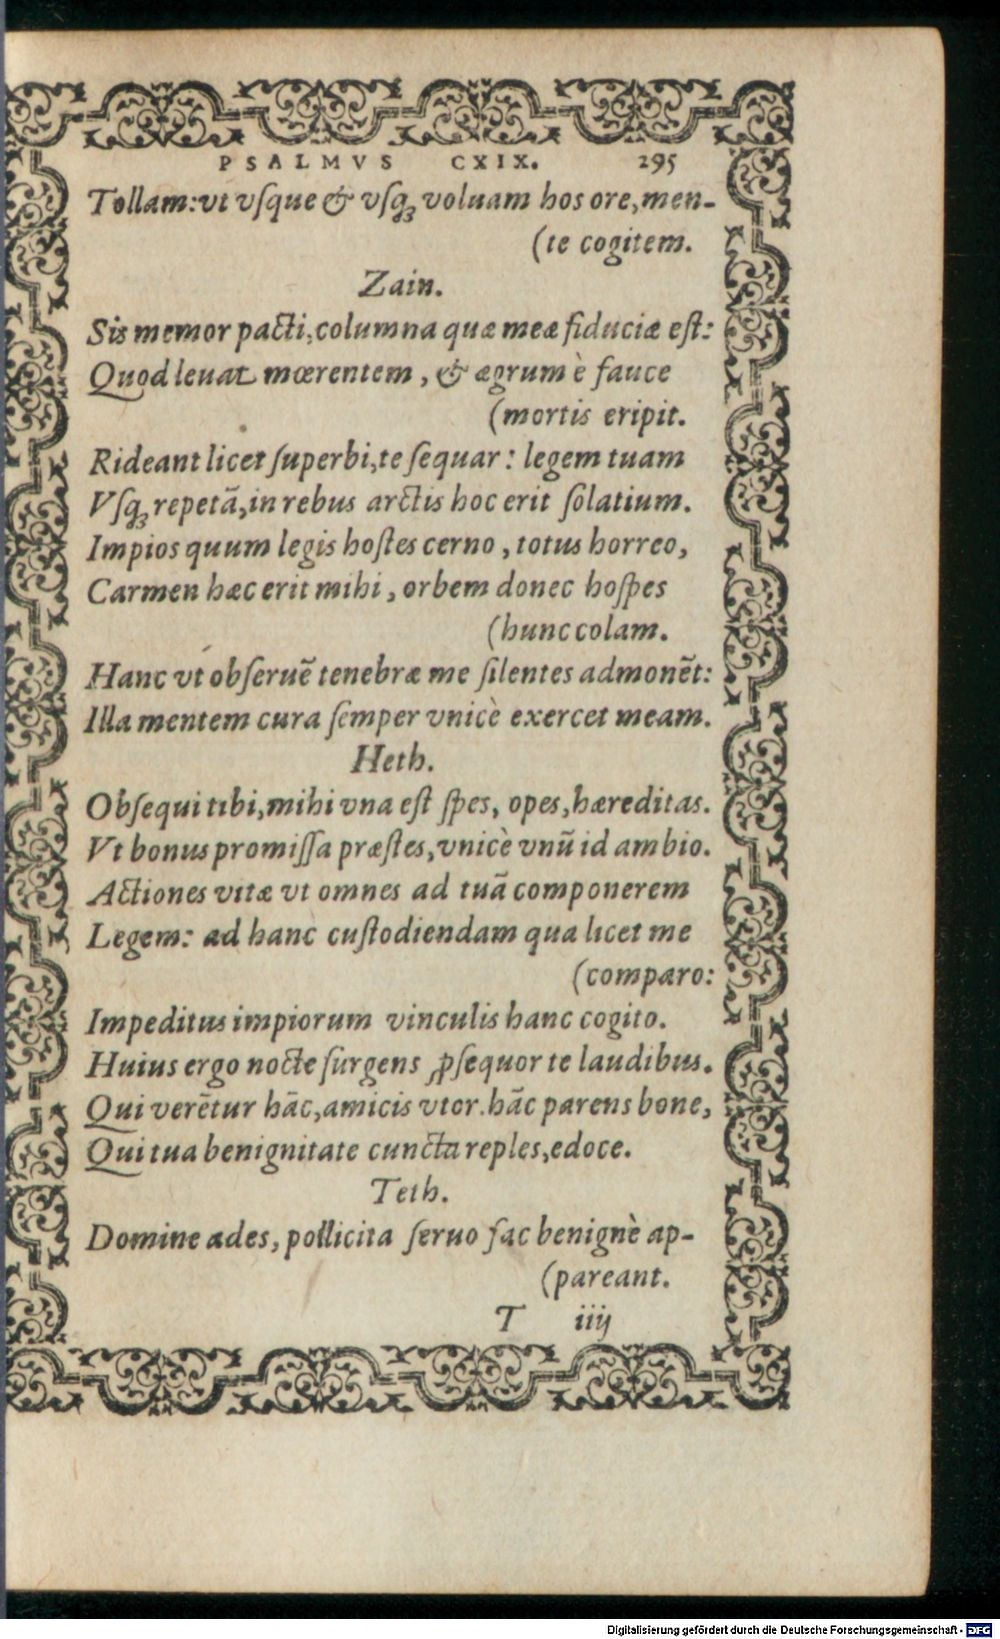 PSALMVS CXIX. 295
Tollam: vt vſque & vſq́ꝫ voluam hos ore, men-
(te cogitem.
Zain.
Sis memor pacti, columna quæ meæ fiduciæ eſt:
Quod leuat mœrentem, & ægrum è fauce
(mortis eripit.
Rideant licet ſuperbi, te ſequar: legem tuam
Vſqꝫ repetã, in rebus arctis hoc erit ſolatium.
Impios quum legis hoſtes cerno, totus horreo,
Carmen hæc erit mihi, orbem donec hoſpes
(hunc colam.
Hanc vt obſeruẽ tenebræ me ſilentes admonẽt:
Illa mentem cura ſemper vnicè exercet meam.
Heth.
Obſequi tibi, mihi vna eſt ſpes, opes, hæreditas.
Vt bonus promiſſa præſtes, vnicè vnũ id ambio.
Actiones vitæ vt omnes ad tuã componerem
Legem: ad hanc cuſtodiendam qua licet me
(comparo:
Impeditus impiorum vinculis hanc cogito.
Huius ergo nocte ſurgens ꝓſequor te laudibus.
Qui verẽtur hãc, amicis vtor. hãc parens bone,
Qui tua benignitate cuncta reples, edoce.
Teth.
Domine ades, pollicita ſeruo fac benignè ap-
(pareant.
T iiij
Digitalisierung gefördert durch die Deutsche Forschungsgemeinschaft - DFG